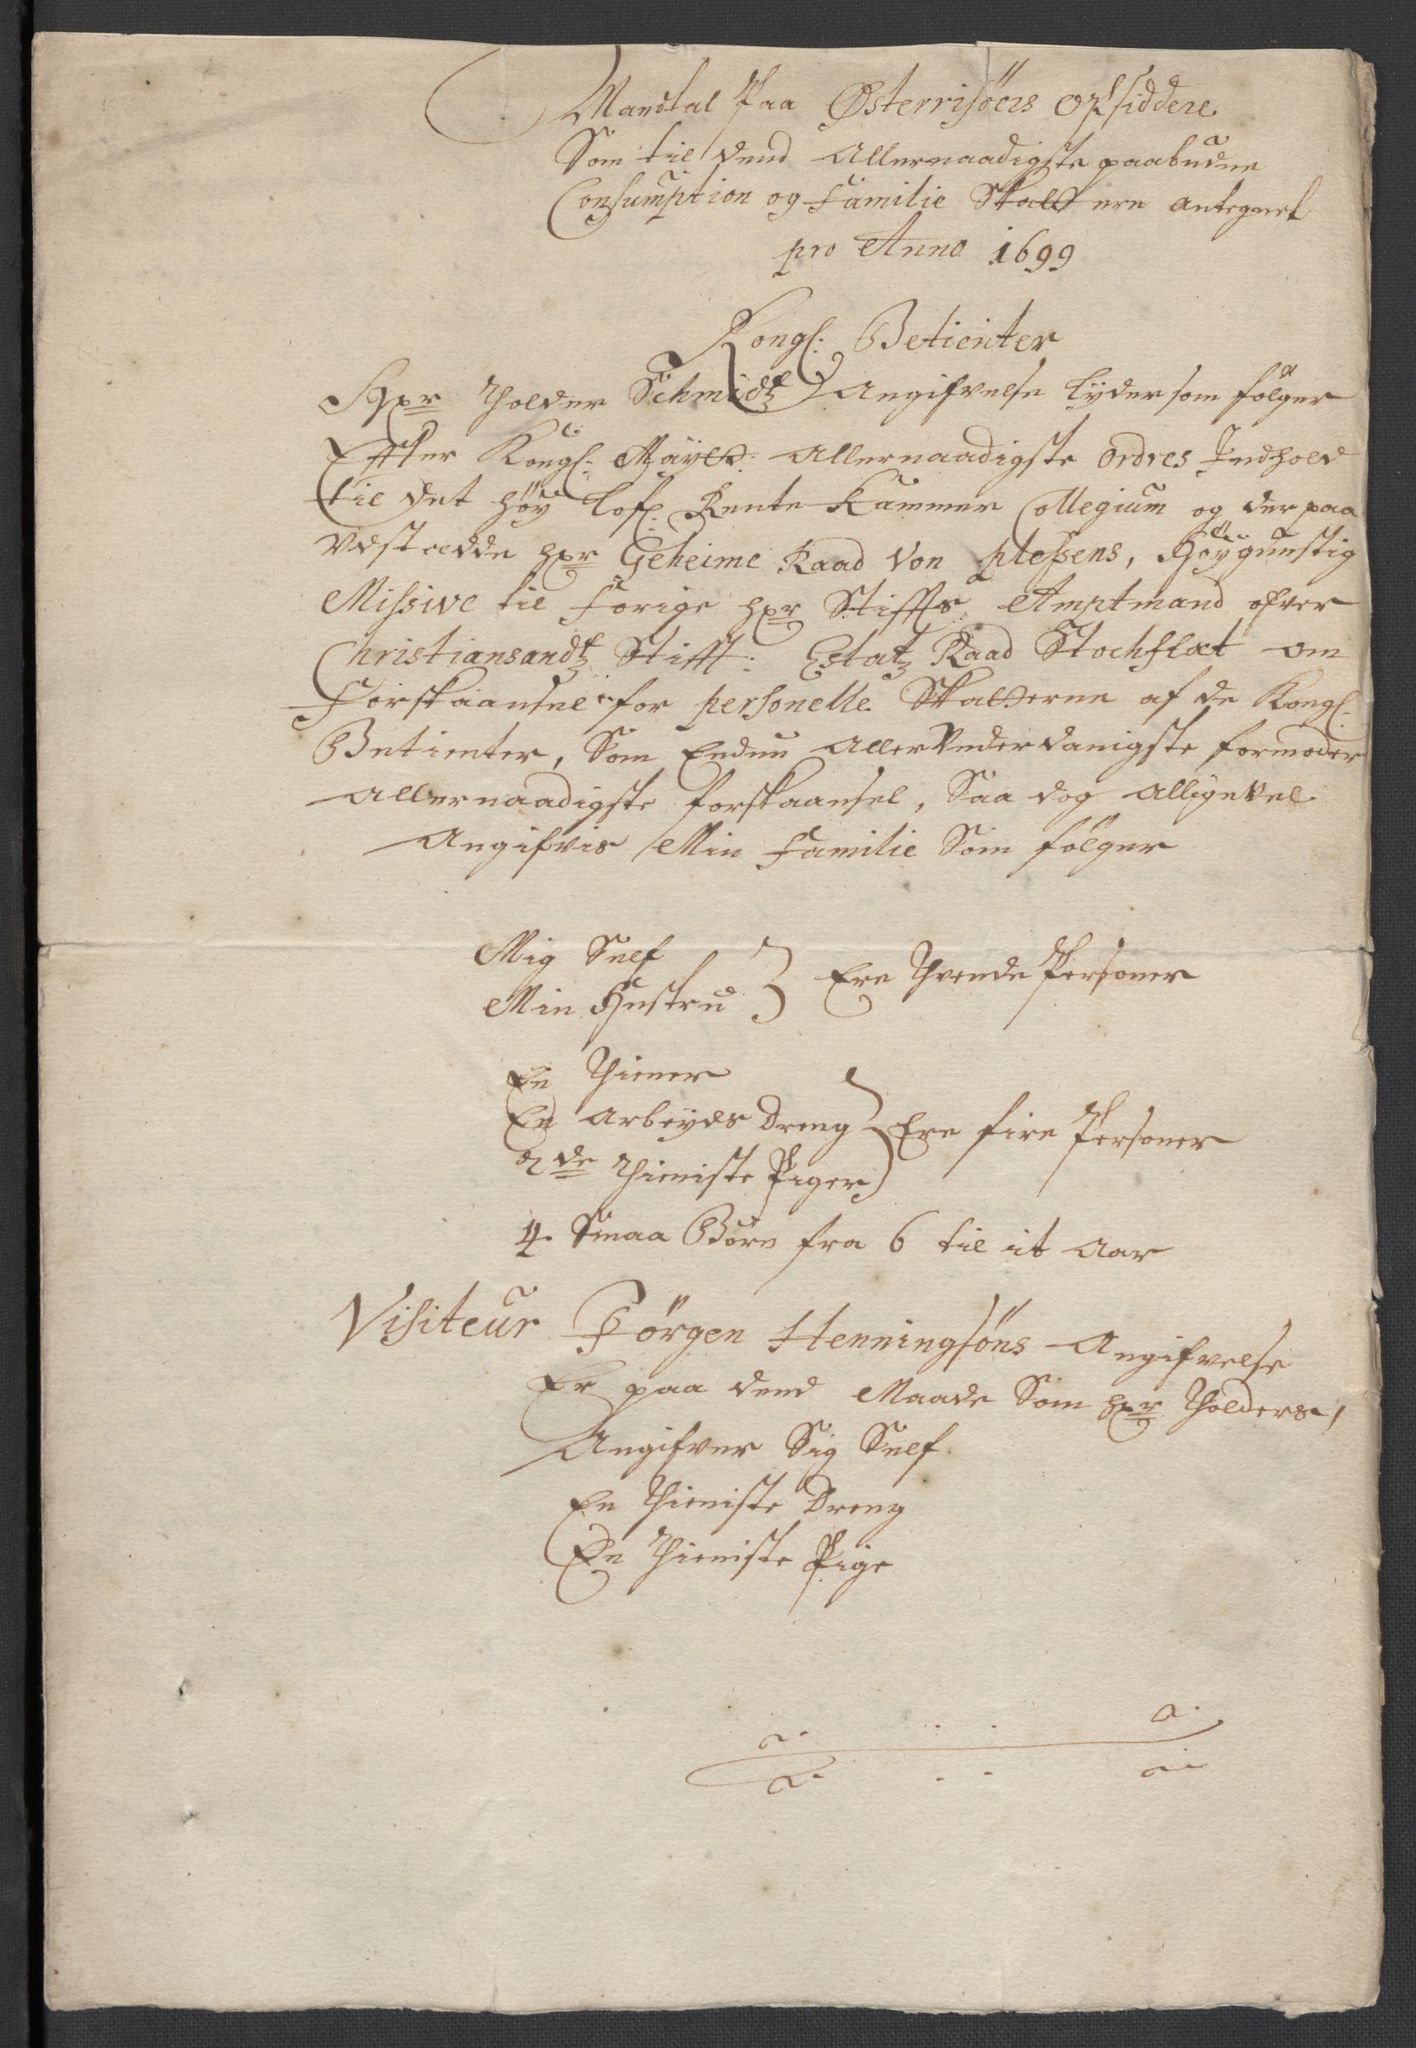 Mandtal Paa Østerrisöers opsiddere
Som til dend Allernaadigste paabudne
Consumption og Familie Skatt ere antegnet
pro Anno 1699
Kongl: Betienter
Hr Tholder Schmidtz Angifvelse lyder som fölger
Effter Kongl: Mayts: Allernaadigste Ordres Indhold
til det höy lofl. Rente Kammer Collegium og der paa
Vdstædde hr Geheime Raad Von Plessens, Höygunstig
Missive til Forige hr Stiffts Amptmand ofver
Christiansandtz Stifft: Estatz Raad Stochflæt om
Forskaansel for personelle Skatterne af de Kongl:
Betienter, Som Endnu Allervnderdanigste formoder
Allernaadigste forskaansel, Saa dog Alligevel
Angifvis Min Familie Som fölger
Mig Self
Min Hustru } Ere Thvende Personer
En Thiener
En Arbeyds Dreng } Ere fire Personer
2de Thieniste Piger
4 Smaa Börn fra 6 til it Aar
Visiteur Jörgen Henningsöns Angifvelse
Er paa dend Maade Som hr Tholders,
Angifver Sig Self
En Thieniste Dreng
En Thieniste Pige